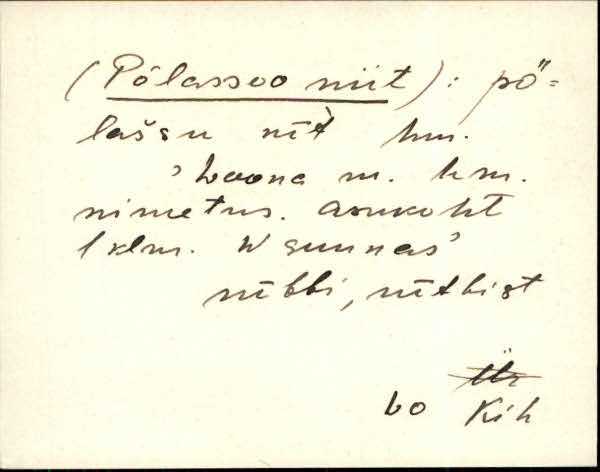 (Põlassoo niit): põ-
lašsu nīt̀ hm.
'Loona m. hm.
nimetus. asukoht
1 klm. W suunas'
nībbi, nītkist
bo Kih